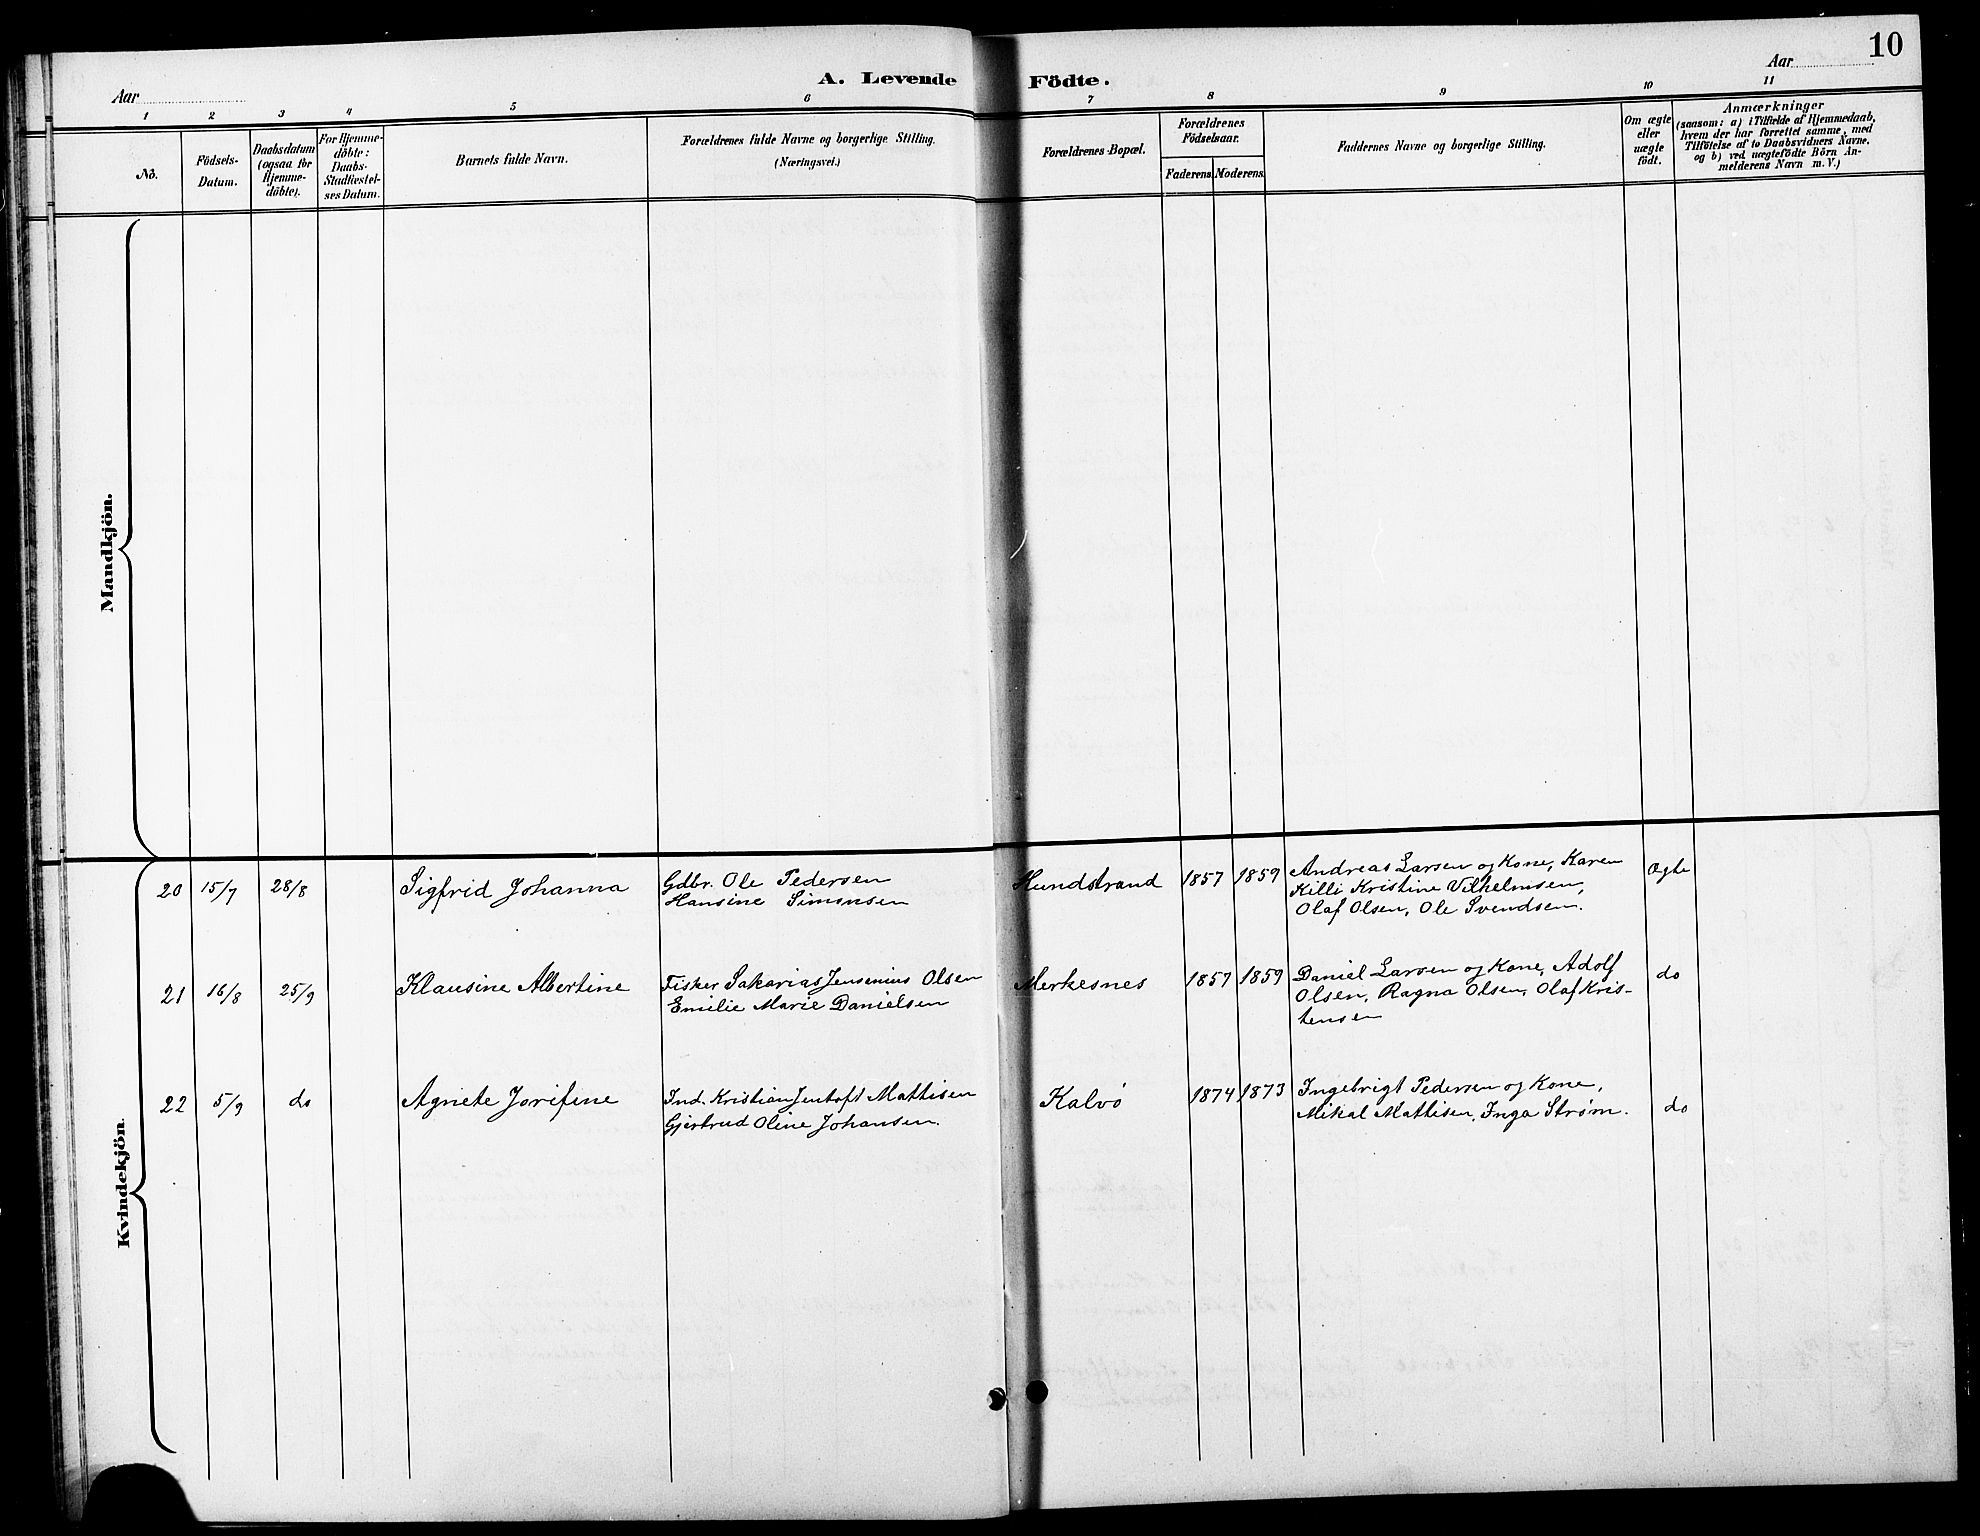 10
A. Levende Födte.
Aar
Aar
1 2 3 4 5 6 7 8 9 10 11
No.
Födsels-
Datum.
Daabsdatum
(ogsaa for
Hjemme-
döbte).
For Hjemme-
döbte:
Daabs-
Stadfæstel-
ses Datum.
Barnets fulde Navn.
Forældrenes fulde Navne og borgerlige Stilling.
(Næringsvei.)
Forældrenes Bopæl.
Forældrenes
Födselsaar.
Faderens. Moderens.
Faddernes Navne og borgerlige Stilling.
Om ægte
eller
uægte
födt.
Anmærkninger
(saasom: a) i Tilfælde af Hjemmedaab,
hvem der har forrettet samme, med
Tilföielse af to Daabsvidners Navne,
og b) ved uægtefödte Börn An-
melderens Navn m. V.)
Mandkjön.
Kvindekjön.
20 15/7 28/8 Sigfrid Johanna Gdbr. Ole Pedersen Hundstrand 1857 1859 Andreas Larsen og Kone, Karen Ægte
Hansine Simonsen Killi Kristine Vilhelmsen,
Olaf Olsen, Ole Svendsen.
21 16/8 25/9 Klausine Albertine Fisker Sakarias Jensenius Olsen Merkesnes 1857 1859 Daniel Larsen og Kone, Adolf do
Emilie Marie Danielsen Olsen, Ragna Olsen, Olaf Kris-
tensen
22 5/9 do Agnete Jorifine Ind. Kristian Jentoft Mattisen Kalvö 1874 1873 Ingebrigt Pedersen og Kone,
Gjertrud Oline Johansen. Mikal Mattisen, Inga Strøm. do